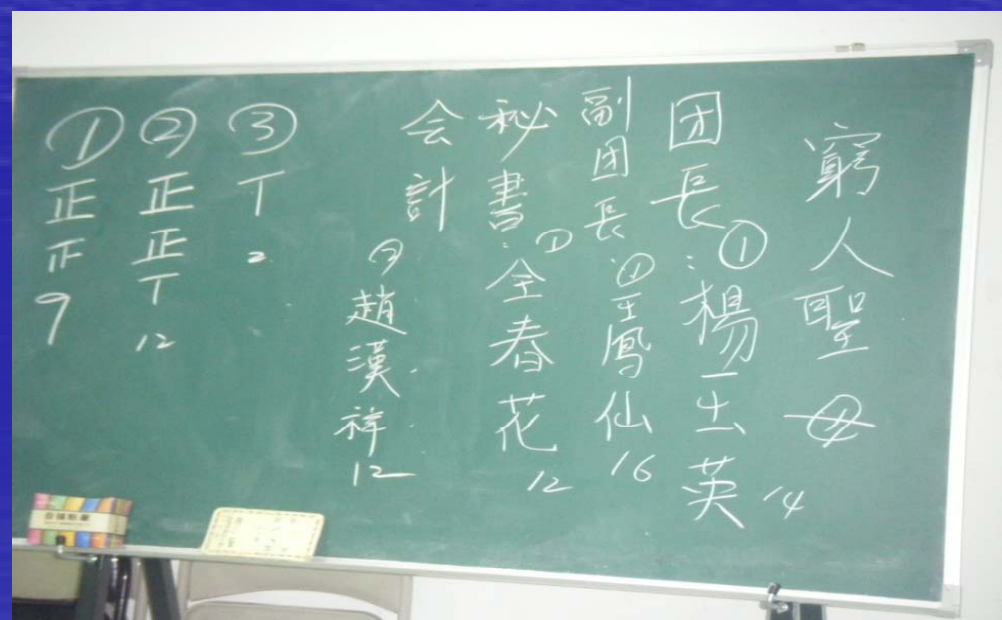 窮人聖母
团長:①楊玉英 14
副团長:①王鳳仙 16
秘書:①全春花 12
会計 ②趙漢祥 12
③ 丅 2
② 正正丅 12
① 正正 9